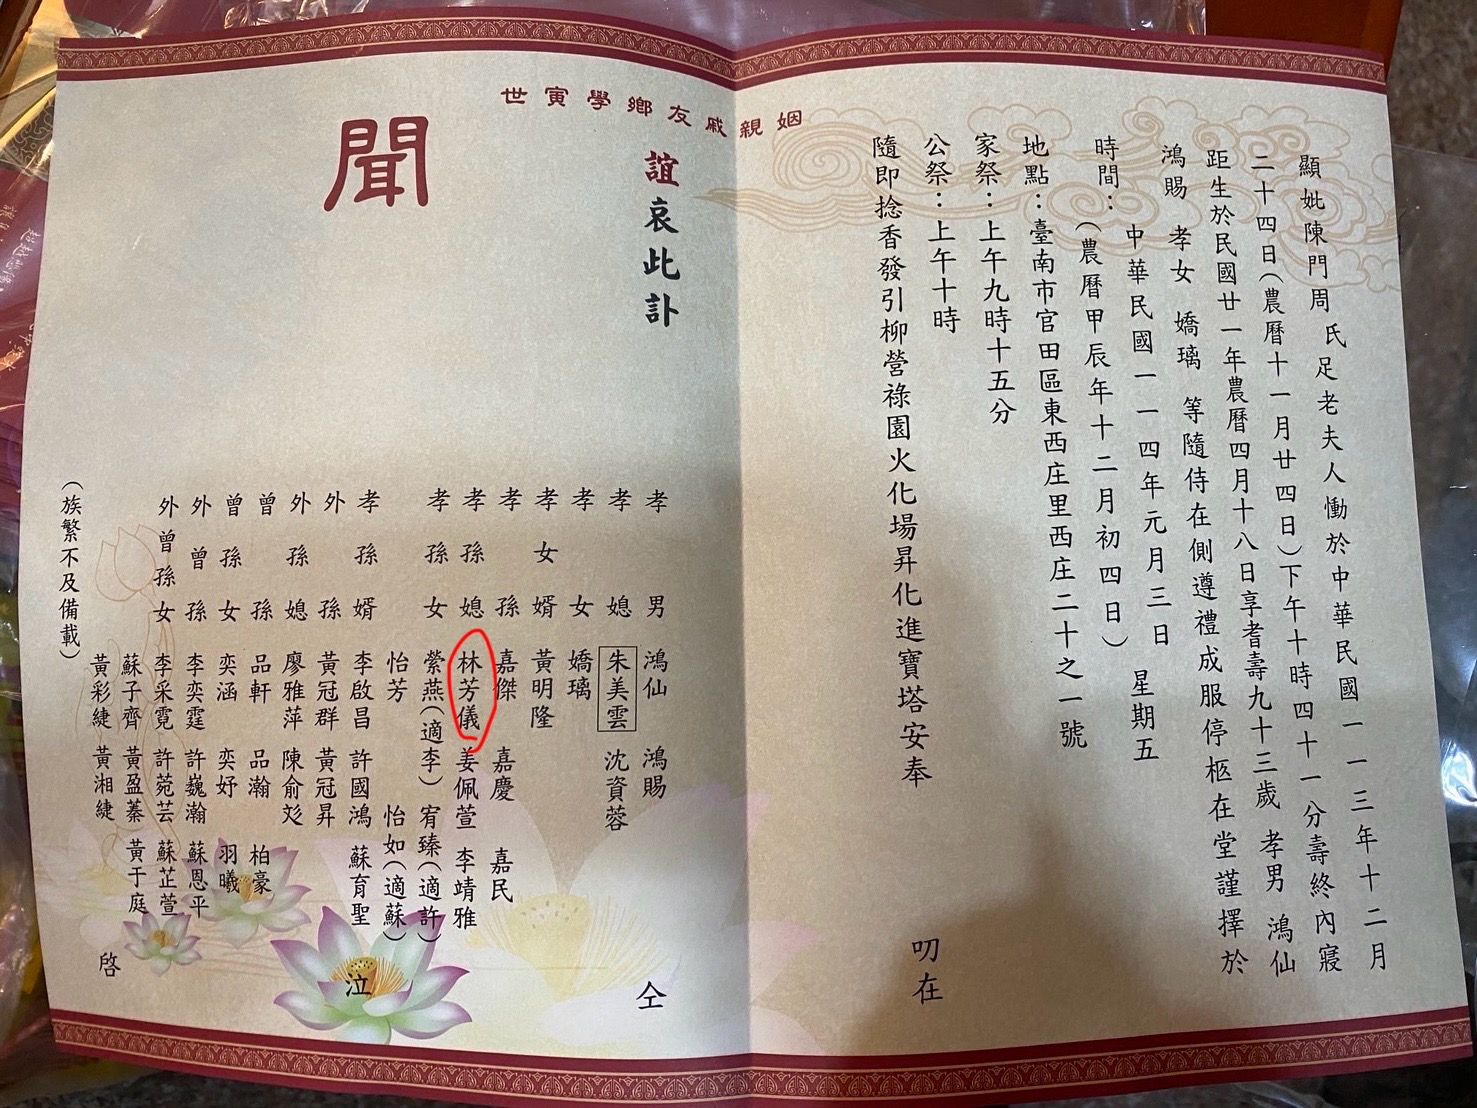 顯妣陳門周氏足老夫人慟於中華民國一一三年十二月
二十四日(農曆十一月廿四日)下午十時四十一分壽終內寢
距生於民國廿一年農曆四月十八日享耆壽九十三歲 孝男 鴻仙
鴻賜 孝女 嬌璃 等隨侍在側遵禮成服停柩在堂謹擇於
中華民國一一四年元月三日 星期五
時間：(農曆甲辰年十二月初四日)
地點：臺南市官田區東西庄里西庄二十之一號
家祭：上午九時十五分
公祭：上午十時
隨即捻香發引柳營祿園火化場昇化進寶塔安奉
叨在
姻親戚友鄉學寅世
誼哀此訃
聞
孝男 鴻仙 鴻賜
孝媳 朱美雲 沈資蓉
孝女 嬌璃
孝女婿 黃明隆
孝孫 嘉傑 嘉慶 嘉民
孝孫媳 林芳儀 姜佩萱 李靖雅
孝孫女 縈燕(適李) 宥臻(適許)
怡芳 怡如(適蘇)
孝孫婿 李啟昌 許國鴻 蘇育聖
外孫 黃冠群 黃冠昇
外孫媳 廖雅萍 陳俞彣
曾孫 品軒 品瀚 柏豪
曾孫女 奕涵 奕妤 羽曦
外曾孫 李奕霆 許巍瀚 蘇恩平
外曾孫女 李采霓 許菀芸 蘇芷萱
蘇子齊 黃盈蓁 黃于庭
黃彩緁 黃湘緁
仝
泣
啓
(族繁不及備載)